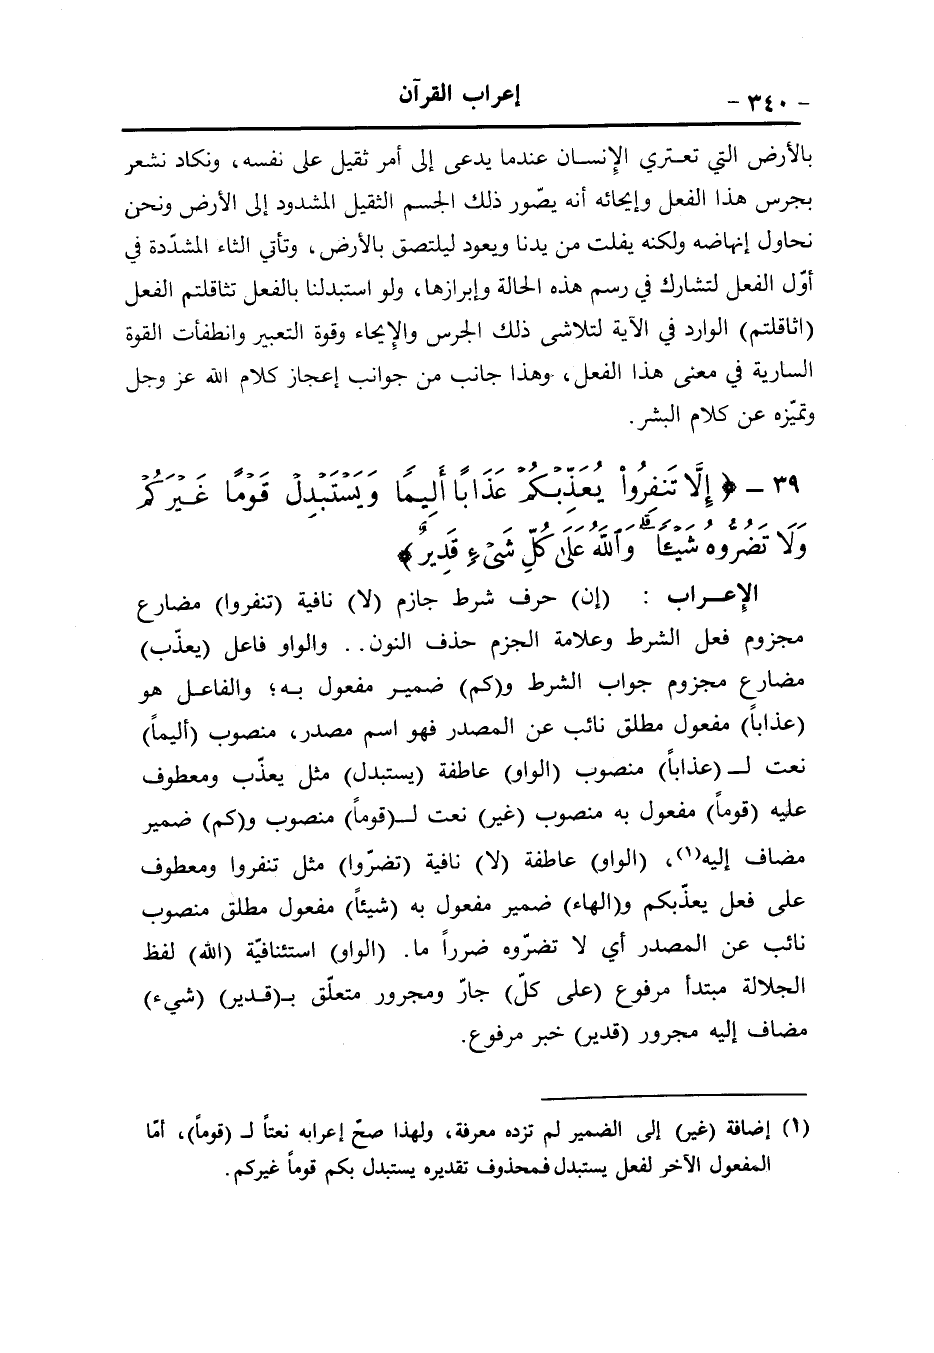 - ٣٤٠ -
إعراب القرآن
بالأرض التي تعتري الإنسان عندما يدعى إلى أمر ثقيل على نفسه، ونكاد نشعر
بجرس هذا الفعل وإيحائه أنه يصّور ذلك الجسم الثقيل المشدود إلى الأرض ونحن
نحاول إنهاضه ولكنه يفلت من يدنا ويعود ليلتصق بالأرض، وتأتي الثاء المشدّدة في
أوّل الفعل لتشارك في رسم هذه الحالة وإبرازها، ولو استبدلنا بالفعل تثاقلتم الفعل
(اثاقلتم) الوارد في الآية لتلاشى ذلك الجرس والإيحاء وقوة التعبير وانطفأت القوة
السارية في معنى هذا الفعل، وهذا جانب من جوانب إعجاز كلام الله عز وجل
وتميّزه عن كلام البشر.
٣٩ - ﴿ إِلَّا تَنفِرُواْ يُعَذِّبْكُمْ عَذَابًا أَلِيمًا وَيَسْتَبْدِلْ قَوْمًا غَيْرَكُمْ
وَلَا تَضُرُّوهُ شَيْئًا ۗ وَاللَّهُ عَلَىٰ كُلِّ شَىْءٍ قَدِيرٌ ﴾
الإعراب : (إن) حرف شرط جازم (لا) نافية (تنفروا) مضارع
مجزوم فعل الشرط وعلامة الجزم حذف النون.. والواو فاعل (يعذّب)
مضارع مجزوم جواب الشرط و(كم) ضمير مفعول به؛ والفاعل هو
(عذاباً) مفعول مطلق نائب عن المصدر فهو اسم مصدر، منصوب (أليماً)
نعت لـ (عذاباً) منصوب (الواو) عاطفة (يستبدل) مثل يعذّب ومعطوف
عليه (قوماً) مفعول به منصوب (غير) نعت لـ(قوماً) منصوب و(كم) ضمير
مضاف إليه(١)، (الواو) عاطفة (لا) نافية (تضرّوا) مثل تنفروا ومعطوف
على فعل يعذّبكم و(الهاء) ضمير مفعول به (شيئاً) مفعول مطلق منصوب
نائب عن المصدر أي لا تضرّوه ضرراً ما. (الواو) استئنافيّة (الله) لفظ
الجلالة مبتدأ مرفوع (على كلّ) جارّ ومجرور متعلّق بـ(قدير) (شيء)
مضاف إليه مجرور (قدير) خبر مرفوع.
(١) إضافة (غير) إلى الضمير لم تزده معرفة، ولهذا صحّ إعرابه نعتاً لـ (قوماً)، أمّا
المفعول الآخر لفعل يستبدل فمحذوف تقديره يستبدل بكم قوماً غيركم.